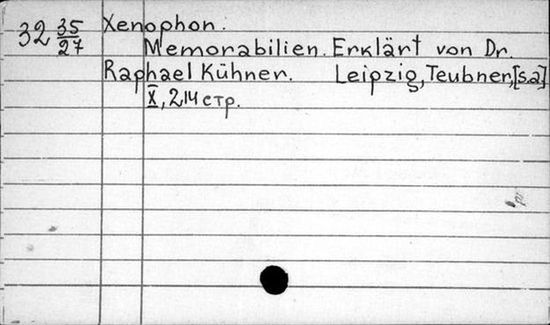 32 35/27 Xenophon.
Memorabilien. Erklärt von Dr.
Raphael Kühner. Leipzig, Teubner, [s.a]
X, 214 стр.